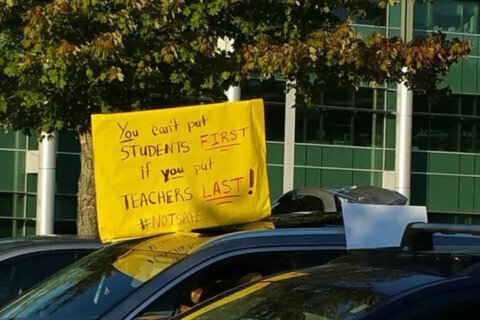 You can't put
STUDENTS FIRST
if you put
TEACHERS LAST!
#NOTSAFE